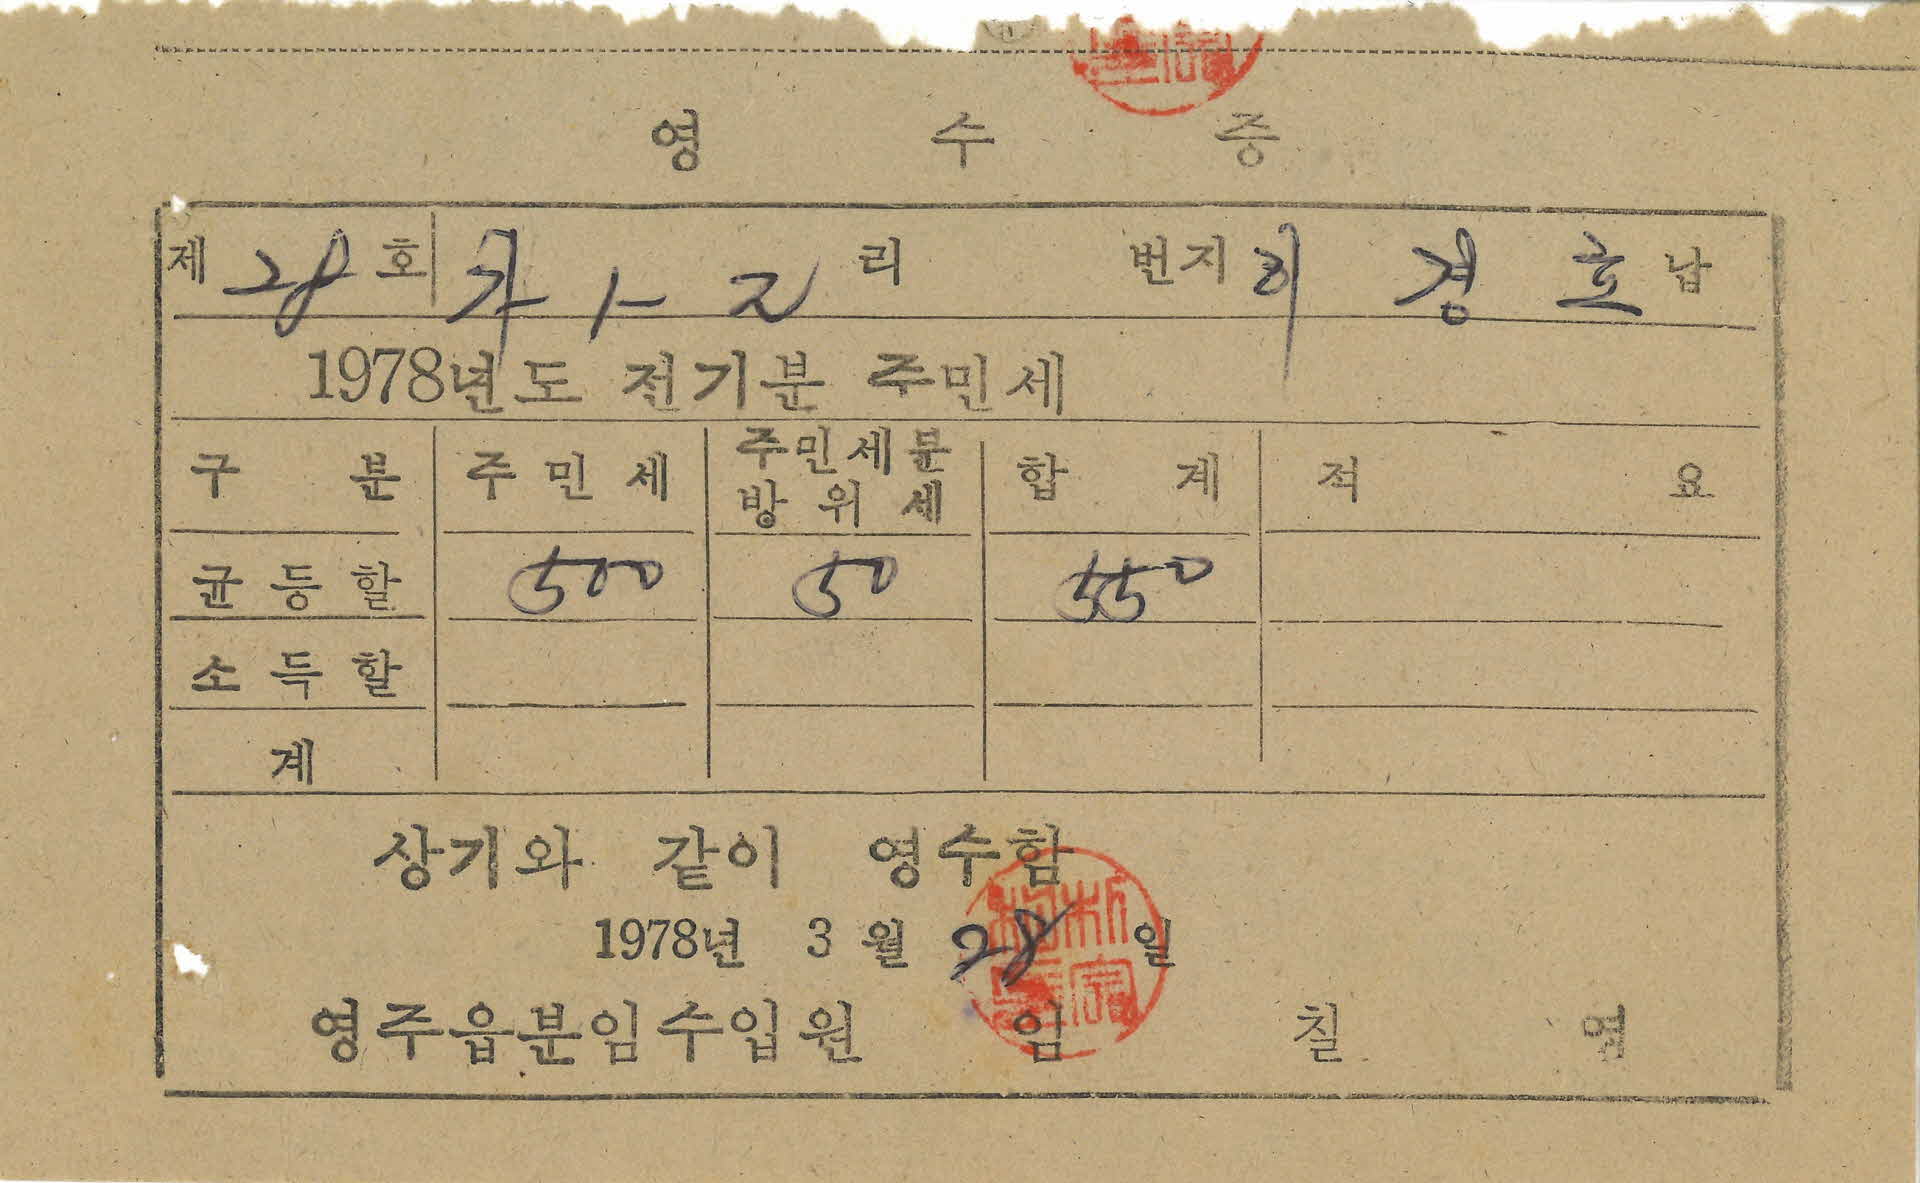 영 수 증
제 28 호 가 1- 2 리 번지 이 경 호 납
1978년도 전기분 주민세
구 분 주 민 세 주민세분 방 위 세 합 계 적 요
균 등 할 500 50 550
소 득 할
계
상기와 같이 영수함
1978년 3 월 28 일
영주읍분임수입원 임 칠